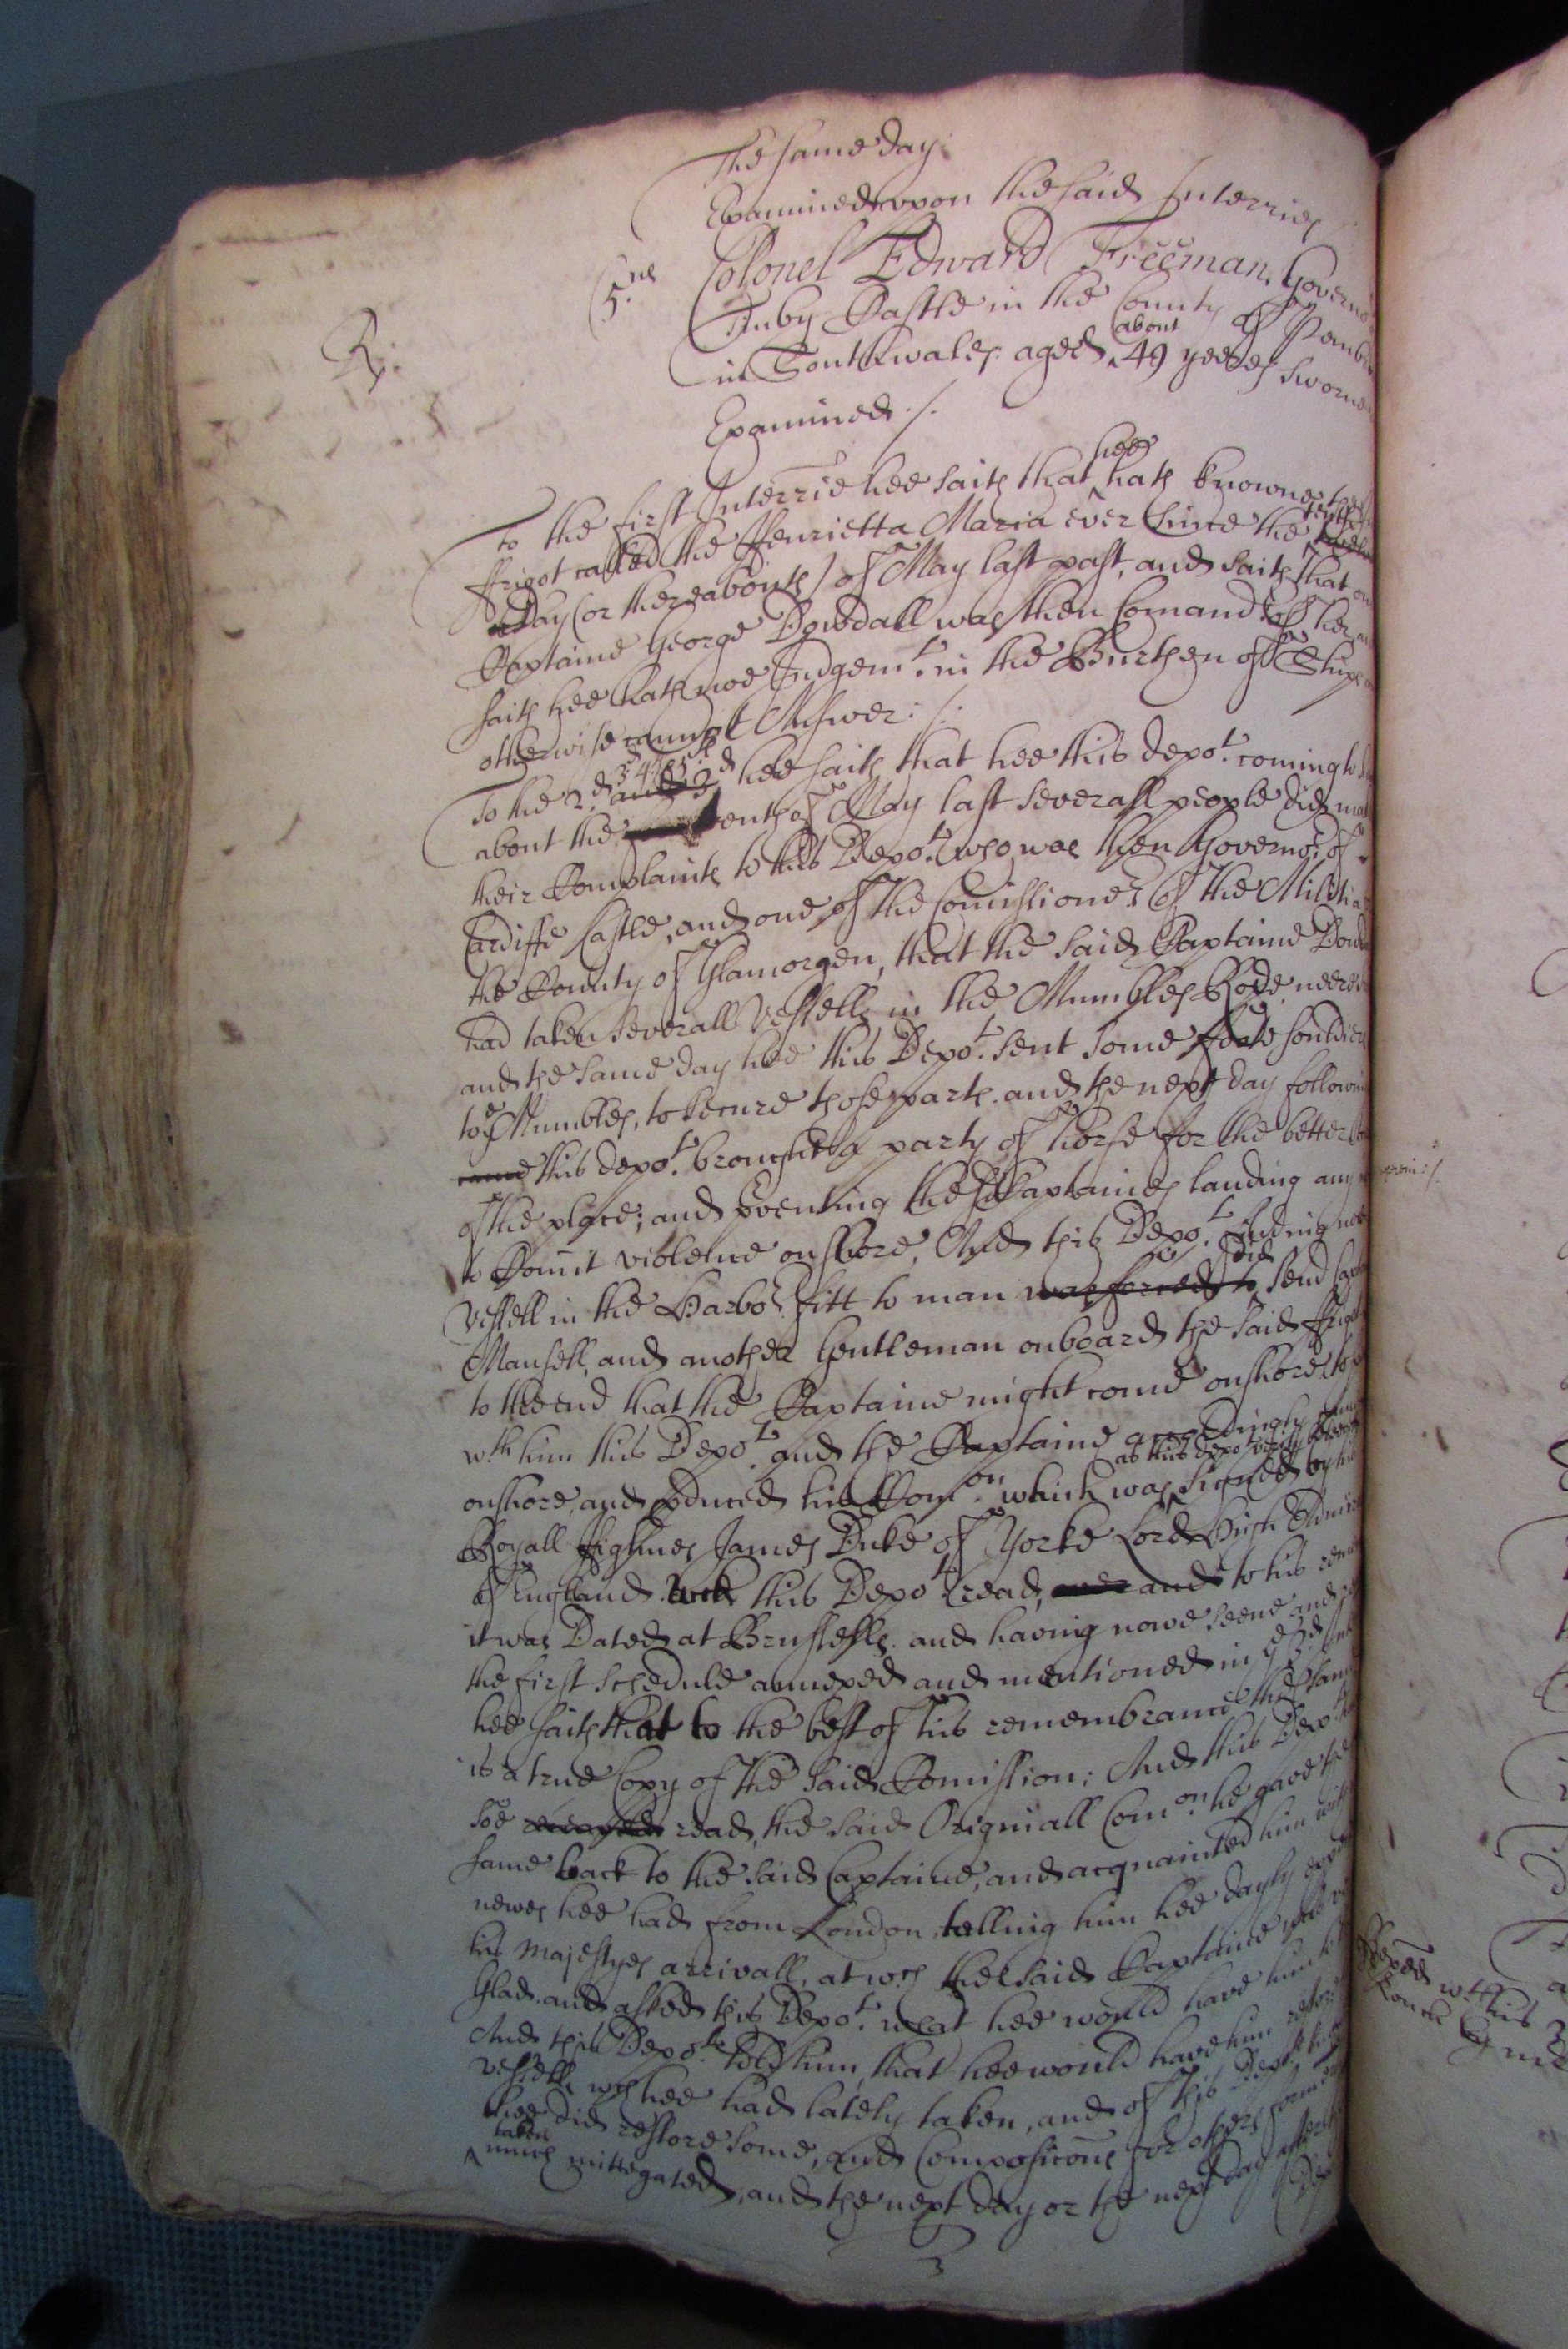 The same day:
Examined upon the said Interries
5.us Collonel Edward Freeman, Governo
Rx: Tinby Castle in the County of Pemb
in Southwales. aged about 49 yeeres sworne
Examined ./.
To the first Interrie hee saith that hee hath knowne the
ffrigot called the Henrietta Maria ever since the tenth
Day (or thereabouts) of May last past, and saith that
Captaine George Dowdall was then Comand.r of her
saith hee hath noe Judgem.t in the Burthen of Shipps
otherwise cannot Answer: /.
To the 2.d 3 4th 5th and 3d hee saith that hee this depo.t coming to
about the tenth of May last severall people did ma
their Complaints to this Depo.t who was then Governor of
Cardiffe Castle, and one of the Comissioners of the Militia
the County of Glamorgen, that the said Captaine Dowd
had taken severall Vessells in the Mumbles Rode neere
and the same day hee this Depo.t sent some foote souldiers
to ye Mumbles, to secure those parts. and the next day followi
came this depo.t brought a party of horse for the better
of the place; and preventing the sd Captaines landing any
to Comit violence on shore, And this Depo.t finding noe
Vessell in the Harbor fitt to man was forced to did send
Mansell, and another Gentleman onboard the said ffrigot
to the end that the Captaine might come onshore to
wth him this Depo.t and the Captaine accordingly came
onshore, and produced his Comon. which was as this depo.t verily beleeves signed by his
Royall Highnes James Duke of Yorke Lord High Admir
of England wch this Depo.t read, and to his rem
it was Dated at Brussells. and having nowe seene and
the first schedule annexed and mentioned in ye 3d
hee saith that to the best of his remembrance the same
is a true Copy of the said Comission; And this Depo.t
soe read, the said Originall Comon. he gave the
same back to the said Captaine, and acquainted him with
newes hee had from London, telling him hee dayly exp
his Majestyes arrivall, at wch the said Captaine
Glad. and asked this Depo.t what hee would have him to
And this Depo.t told him, that hee would have him restore
vessells wch hee had lately taken, and of this Depo.ts
hee did restore some, and Composicons for others form
taken much mittegated, and the next day or the next day after
3